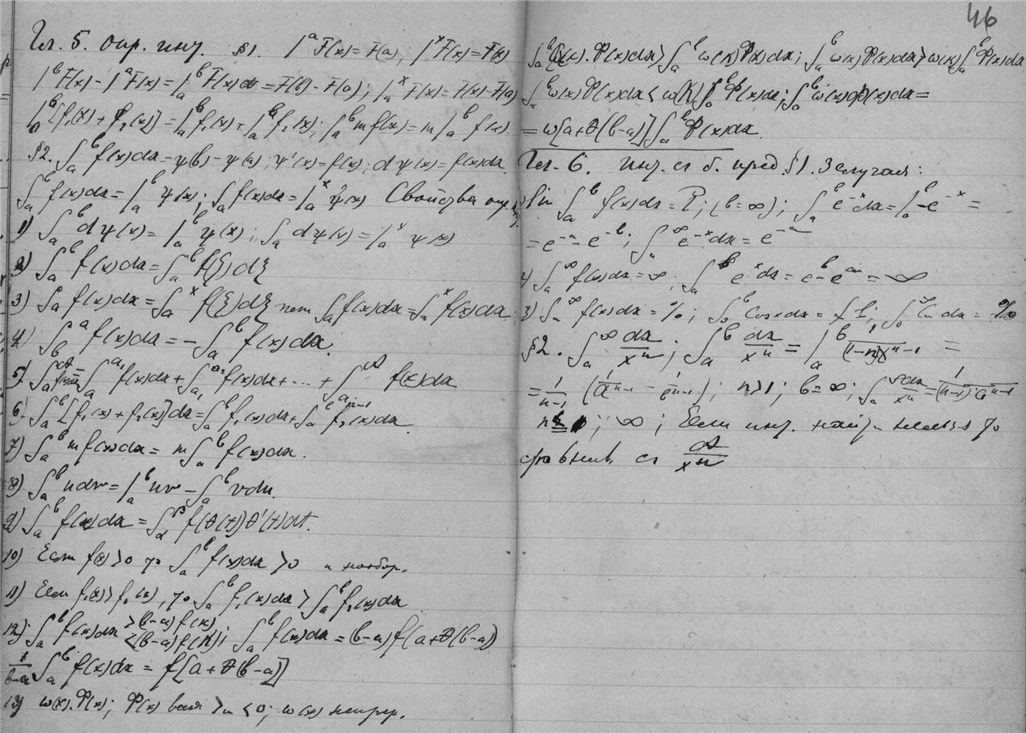 Гл. 5. опр. инт. §1. |ᵃ F(x) = F(a); |ˣ F(x) = F(x)
|ᵇ F(x) - |ᵃ F(x) = |ₐᵇ F(x) = F(b) - F(a); |ₐˣ F(x) = F(x) - F(a)
|ₐᵇ [f₁(x) + f₂(x)] = |ₐᵇ f₁(x) + |ₐᵇ f₂(x); |ₐᵇ m f(x) = m |ₐᵇ f(x)
§2. ∫ₐᵇ f(x)dx = ψ(b) - ψ(a); ψ'(x) = f(x); dψ(x) = f(x)dx
∫ₐᵇ f(x)dx = |ₐᵇ ψ(x); ∫ₐ f(x)dx = |ₐˣ ψ(x) Свойства опр.
1) ∫ₐᵇ dψ(x) = |ₐᵇ ψ(x); ∫ₐ dψ(x) = |ₐˣ ψ(x)
2) ∫ₐᵇ f(x)dx = ∫ₐᵇ f(ξ)dξ
3) ∫ₐ f(x)dx = ∫ₐˣ f(ξ)dξ ∫ₐ f(x)dx = ∫ₐˣ f(x)dx
4) ∫_b^a f(x)dx = -∫ₐᵇ f(x)dx.
5) f(x)dx + f(x)dx + ... + f(x)dx
6) ∫ₐᵇ [f₁(x) + f₂(x)]dx = ∫ₐᵇ f₁(x)dx + ∫ₐᵇ f₂(x)dx
7) ∫ₐᵇ m f(x)dx = m ∫ₐᵇ f(x)dx.
8) ∫ₐᵇ u dv = |ₐᵇ uv - ∫ₐᵇ v du.
9) ∫ₐᵇ f(x)dx = ∫_α^β f(θ(t))θ'(t)dt.
10) Если f(x) > 0 то ∫ₐᵇ f(x)dx > 0 и наобор.
11) Если f₁(x) > f₂(x), то ∫ₐᵇ f₁(x)dx > ∫ₐᵇ f₂(x)dx
12) ∫ₐᵇ f(x)dx > (b-a) f(x) < (b-a) f(X); ∫ₐᵇ f(x)dx = (b-a) f(a+θ(b-a))
1/(b-a) ∫ₐᵇ f(x)dx = f[a+θ(b-a)]
13) ω(x).φ(x); φ(x) > < 0; ω(x) непрер.
46
∫ₐᵇ ω(x).φ(x)dx > ∫ₐᵇ ω(x)φ(x)dx; ∫ₐᵇ ω(x)φ(x)dx > ω(x) ∫ₐᵇ φ(x)dx
∫ₐᵇ ω(x)φ(x)dx < ω(X) ∫ₐᵇ φ(x)dx; ∫ₐᵇ ω(x)φ(x)dx =
= ω[a+θ(b-a)] ∫ₐᵇ φ(x)dx.
Гл. 6. инт. с б. пред. §1. 3 случая:
lim ∫ₐᵇ f(x)dx = P; (b=∞); ∫ₐᵇ e⁻ˣdx = |ₐᵇ -e⁻ˣ =
= e⁻ᵃ - e⁻ᵇ; ∫ₐ^∞ e⁻ˣdx = e⁻ᵃ
∫ₐ^∞ f(x)dx = ∞; ∫ₐᵇ eˣdx = eᵇ - eᵃ = ∞
3) ∫ₐ^∞ f(x)dx = %; ∫₀ᵇ Cos x dx =
§2. ∫ₐ^∞ dx/xⁿ; ∫ₐᵇ dx/xⁿ = |ₐᵇ 1/((1-n)xⁿ⁻¹) =
= 1/(n-1) (1/aⁿ⁻¹ - 1/bⁿ⁻¹); n>1; b=∞; ∫ₐ^∞ dx/xⁿ = 1/((n-1)aⁿ⁻¹)
; ∞; Если инт. то
сравнив. с dx/xⁿ